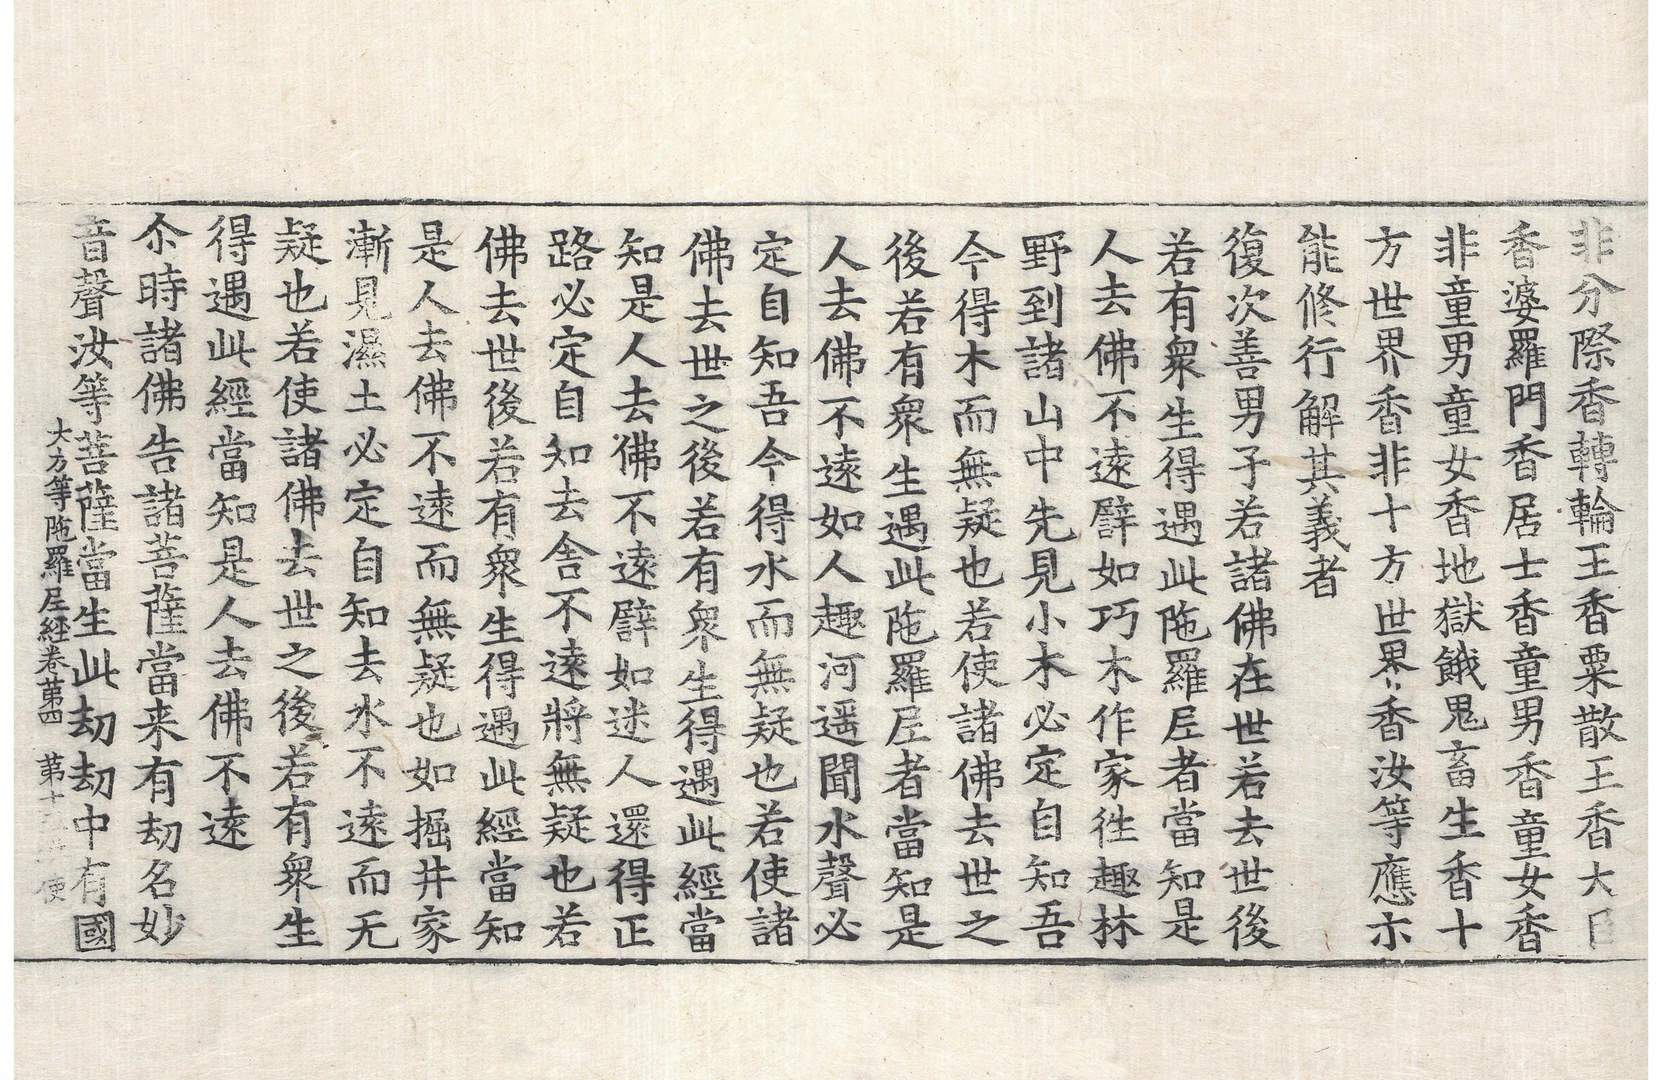 非分際香轉輪王香粟散王香大臣
香婆羅門香居士香童男香童女香
非童男童女香地獄餓鬼畜生香十
方世界香非十方世界香汝等應示
能修行解其義者
復次善男子若諸佛在世若去世後
若有衆生得遇此陁羅𡰱者當知是
人去佛不遠譬如巧木作家往趣林
野到諸山中先見小木必定自知吾
今得木而無疑也若使諸佛去世之
後若有衆生遇此陁羅𡰱者當知是
人去佛不遠如人趣河遥聞水聲必
定自知吾今得水而無疑也若使諸
佛去世之後若有衆生得遇此經當
知是人去佛不遠譬如迷人還得正
路必定自知去舍不遠將無疑也若
佛去世後若有衆生得遇此經當知
是人去佛不遠而無疑也如掘井家
漸見濕土必定自知去水不遠而无
疑也若使諸佛去世之後若有衆生
得遇此經當知是人去佛不遠
尒時諸佛告諸菩薩當来有劫名妙
音聲汝等菩薩當生此劫劫中有國
大方等陁羅𡰱經卷苐四 苐十 使